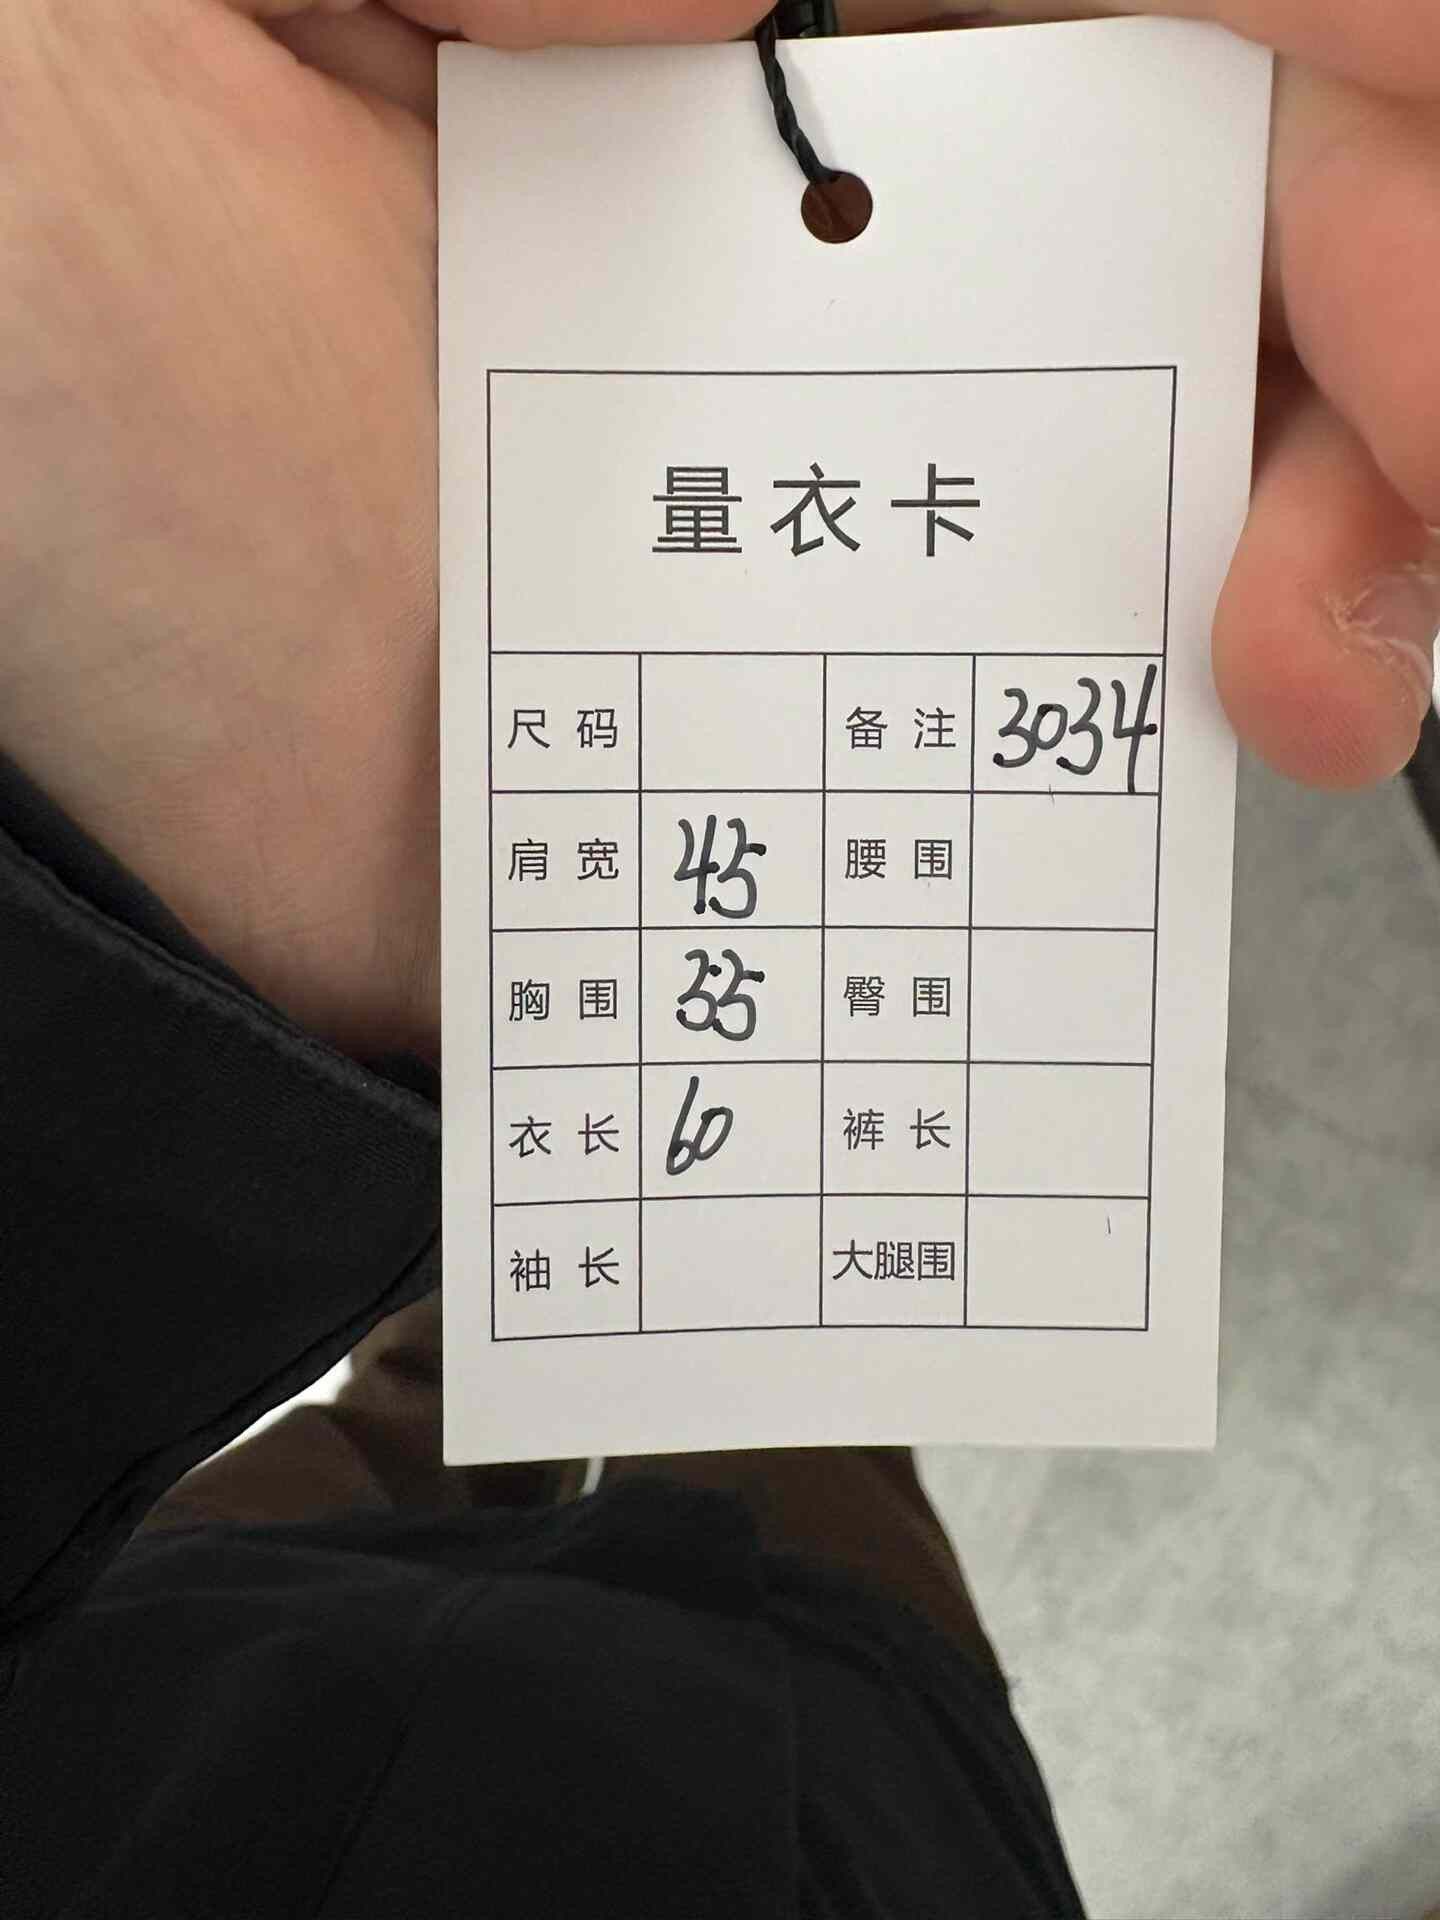 量衣卡
尺码 备注 3034
肩宽 45 腰围
胸围 55 臀围
衣长 60 裤长
袖长 大腿围